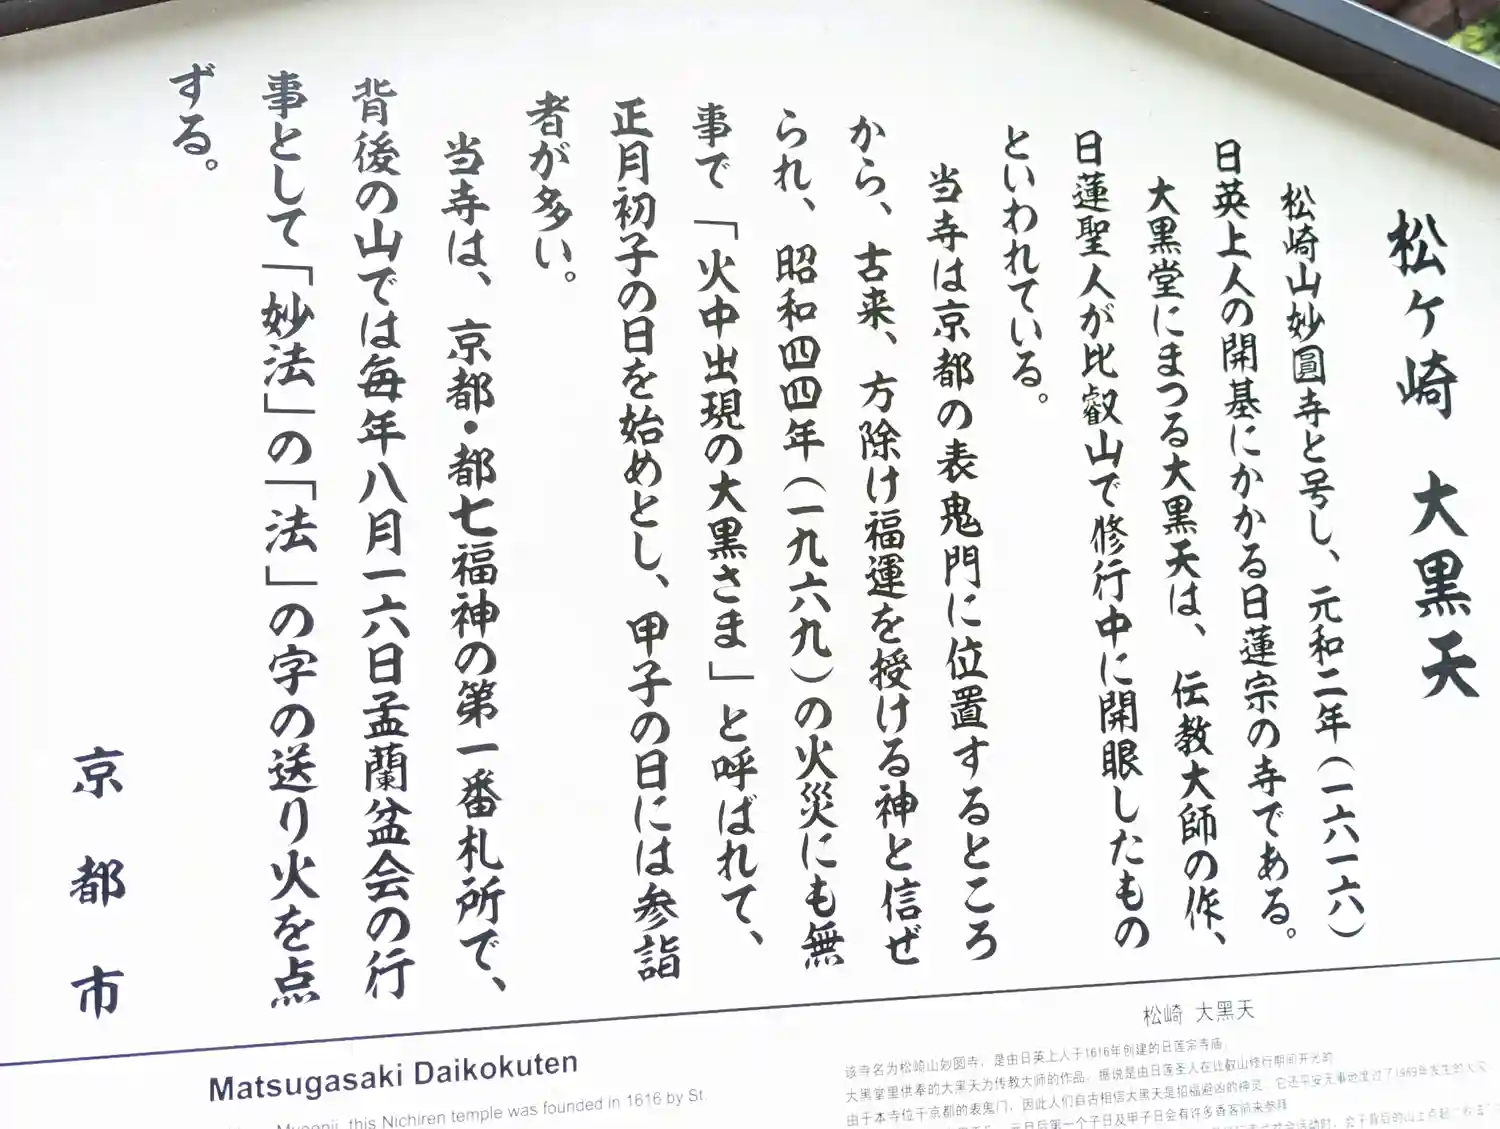 松ヶ崎 大黒天
松崎山妙圓寺と号し、元和二年(一六一六)
日英上人の開基にかかる日蓮宗の寺である。
大黒堂にまつる大黒天は、伝教大師の作、
日蓮聖人が比叡山で修行中に開眼したもの
といわれている。
当寺は京都の表鬼門に位置するところ
から、古来、方除け福運を授ける神と信ぜ
られ、昭和四四年(一九六九)の火災にも無
事で「火中出現の大黒さま」と呼ばれて、
正月初子の日を始めとし、甲子の日には参詣
者が多い。
当寺は、京都・都七福神の第一番札所で、
背後の山では毎年八月一六日盂蘭盆会の行
事として「妙法」の「法」の字の送り火を点
ずる。
京都市
Matsugasaki Daikokuten
this Nichiren temple was founded in 1616 by St.
松崎 大黑天
该寺名为松崎山妙圆寺，是由日英上人于1616年创建的日莲宗寺庙。
大黑堂里供奉的大黑天为传教大师的作品，据说是由日莲圣人在比叡山修行期间开光的
由于本寺位于京都的表鬼门，因此人们自古相信大黑天是招福避凶的神灵，它还平安无事地度过了1969年发生的火灾
元月后第一个子日及甲子日会有许多香客前来参拜